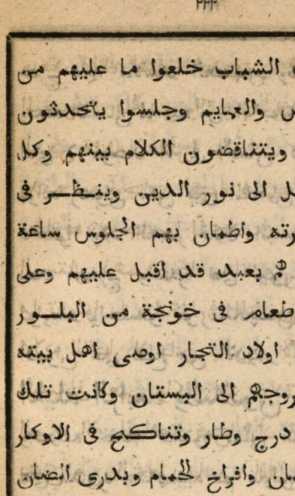 ٢٣٣
الشباب خلعوا ما عليهم من
والعمايم وجلسوا يتحدثون
ويتناقضون الكلام بينهم وكل
الى نور الدين وينظر فى
واطمان بهم الجلوس ساعة
بعبد قد اقبل عليهم وعلى
طعام فى خونجة من البلور
اولاد التجار اوصى اهل بيته
الى البستان وكانت تلك
درج وطار وتناكح فى الاوكار
وافراخ الحمام وبدرى الضان